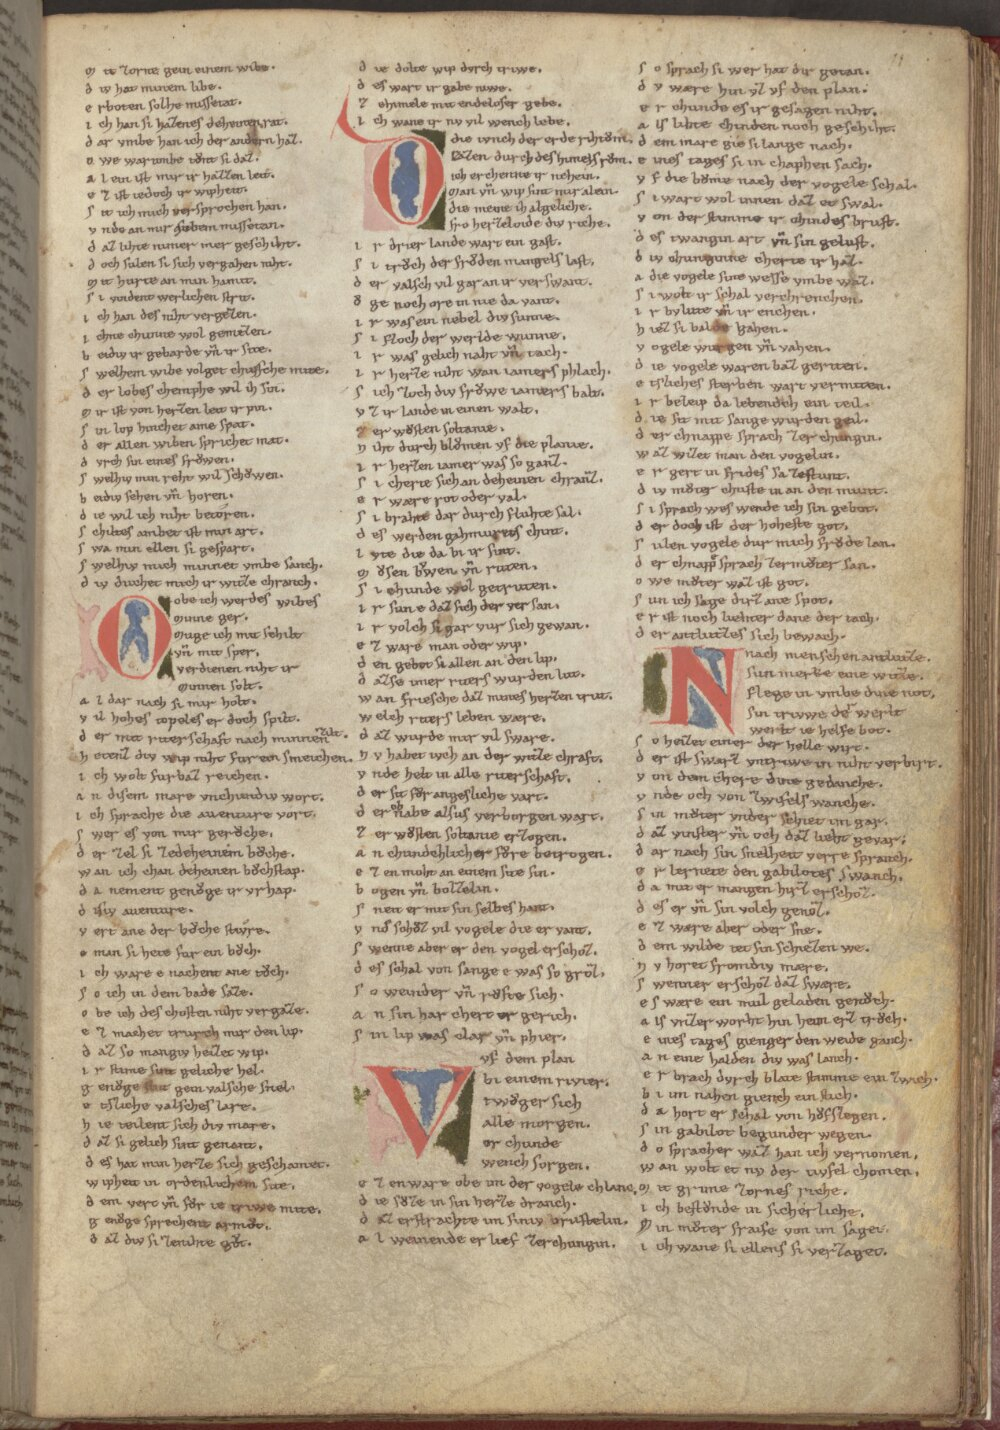 m it zorne gein einem wibe.
d iv hat minem libe.
e rboten solhe missetat.
i ch han si hazenes deheinen rat.
d ar vmbe han ich der andern haz.
o we warvmbe tvont si daz.
a l ein ist mir ir hazzen leit.
e z ist iedoch ir wipheit.
s it ich mich versprochen han.
v nde an mir selbem missetan.
d az lihte nimer mer geschiht.
d och sulen si sich vergahen niht.
m it hvrte an min hamit.
s i vindent werlichen strit.
i ch han des niht vergezen.
i chne chvnne wol gemezen.
b eidiv ir gebarde vñ ir site.
s welhem wibe volget chivssche mite.
d er lobes chemphe wil ih sin.
m ir ist von herzen leit ir pin.
s in lop hinchet ame spat.
d er allen wiben sprichet mat.
d vrch sin eines frowen.
s welhiv min reht wil schowen.
b eidiv sehen vñ horen.
d ie wil ich niht betoren.
s chiltes ambet ist min art.
s wa min ellen si gespart.
s welhiv mich minnet vmbe sanch.
d iv dvchet mich ir witze chranch.
O obe ich werdes wibes
minne ger.
mvge ich mit schilt
vñ mit sper.
verdienen niht ir
minnen solt.
a l dar nach si mir holt.
v il hohes topeles er doch spilt.
d er mit riterschaft nach minnen zilt.
h etenz div wip niht fur ein smeichen.
i ch wolt furbaz reichen.
a n disem mare vnchvndiv wort.
i ch sprache die aventure vort.
s wer es von mir geruche.
d er zel si zedeheinem buche.
w an ich chan deheinen buchstap.
d a nement genuge ir vrhap.
d isiv aventure.
v ert ane der buche sture.
e man si hete fur ein buch.
i ch ware e nachent ane tuch.
s o ich in dem bade saze.
o be ich des chosten niht vergaze.
e z machet trurch mir den lip.
d az so mangiv heizet wip.
i r stime sint geliche hel.
g enuge sint gein valsche snel.
e tsliche valsches lare.
h ie teilent sich div mare.
d az si gelich sint genant.
d es hat min herze sich geschamet.
w ipheit in ordenlichem site.
d em vert vñ fur ie triwe mite.
g enuge sprechent armut.
d az div si zenihte gut.
d ie dolte wip dvrch triwe.
d es wart ir gabe niwe.
z ehimele mit endeloser gebe.
i ch wane ir nv vil wench lebe.
O die ivnch der erde rihtom.
liezen durch des himels rom.
ich erchenne ir nehein.
man vñ wip sint mir alein.
die meine ih algeliche.
fro herzeloide div riche.
i r drier lande wart ein gast.
s i truch der froden mangels last.
d er valsch vil gar an ir verswant.
o ge noch ore in nie da vant.
i r was ein nebel div sunne.
s i floch der werlde wunne.
i r was gelich naht vñ tach.
i r herze niht wan iamers phlach.
s ich zoch div frowe iamers balt.
v z ir lande in einen walt.
z er wosten soltanie.
n iht durch blomen vf die planie.
i r herzen iamer was so ganz.
s i cherte sich an deheinen chranz.
e r ware rot oder val.
s i brahte dar durch fluhte sal.
d es werden gahmurets chint.
l vte die da bi ir sint.
m osen bowen vñ ruten.
s i chunde wol getruten.
i r sun e daz sich der versan.
i r volch si gar vur sich gewan.
e z ware man oder wip.
d en gebot si allen an den lip.
d azse imer riters wurden lut.
w an friesche daz mines herzen trut.
w elch riters leben ware.
d az wurde mir vil sware.
n v habet ivch an der witze chraft.
v nde helt in alle riterschaft.
d er sit for angesliche vart.
d er chnabe alsus verborgen wart.
z er wosten soltanie erzogen.
a n chundehlicher fore betrogen.
e z en moht an einem site sin.
b ogen vñ bolzelin.
s neit er mit sin selbes hant.
v nd schoz vil vogele die er vant.
s wenne aber er den vogel erschoz.
d es schal von sange e was so groz.
s o weinder vñ rofte sich.
a n sin har chert er gerich.
s in lip was clar vñ phier.
V vf dem plan
bi einem rivier.
twoger sich
alle morgen.
er chunde
wench sorgen.
e z enware obe im der vogele chlanc.
d ie soze in sin herze dranch.
d az erstrachte im siniv brustelin.
a l weinende er lief zerchungin.
s o sprach si wer hat dir getan.
d v ware hin vz vf den plan.
e r chunde es ir gesagen niht.
a ls lihte chinden noch geschiht.
d em mare gie si lange nach.
e ines tages si in chaphen sach.
v f die bome nach der vogele schal.
s i wart wol innen daz et swal.
v on der stimme ir chindes brust.
d es twangin art vñ sin gelust.
d iv chunginne cherte ir haz.
a die vogele sine wesse vmbe waz.
s i wolt ir schal verchrenchen.
i r bvlute vñ ir enchen.
h iez si balde gahen.
v ogele wurgen vñ vahen.
d ie vogele waren baz geriten.
e tsliches sterben wart vermiten.
i r beleip da lebendeh ein teil.
d ie sit mit sange wurden geil.
d er chnappe sprach zer chungin.
w az wizet man den vogelin.
e r gert in frides sa zestunt.
d iv moter chuste in an den munt.
s i sprach wes wende ich sin gebot.
d er doch ist der hoheste got.
s vlen vogele dur mich frode lan.
d er chnappe sprach zer moter san.
o we moter waz ist got.
s un ich sage dirz ane spot.
e r ist noch liehter dane der tach.
d er antluzzes sich bewach.
N nach menschen antluzze.
sun merke eine witze.
flege in vmbe dine not.
sin triwe der werlt
werlt ie helfe bot.
s o heizet einer der helle wirt.
d er ist swarz vntriwe in niht verbirt.
v on dem chere dine gedanche.
v nde och von zwifels wanche.
s in moter vnder schiet im gar.
d az vinster vñ och daz lieht gevar.
d ar nach sin snelheit verre spranch.
e r lernete den gabilotes swanch.
d a mit er mangen hirz erschoz.
d es er vñ sin volch genoz.
e z ware aber oder sne.
d em wilde tet sin schiezen we.
n v horet fromdiv mare.
s wenner erschoz daz sware.
e s ware ein mul geladen genoch.
a ls vnzer worht hin heim erz troch.
e ines tages gienger den weide ganch.
a n eine halden div was lanch.
e r brach dvrch blate stimme ein zwich.
b i im nahen giench ein stich.
d a hort er schal von hofslegen.
s in gabilot begunder wegen.
d o spracher waz han ich vernomen.
w an wolt et nv der tivfel chomen.
m it grime zornes riche.
i ch bestonde in sicherliche.
m in moter fraise von im saget.
i ch wane si ellens si verzaget.